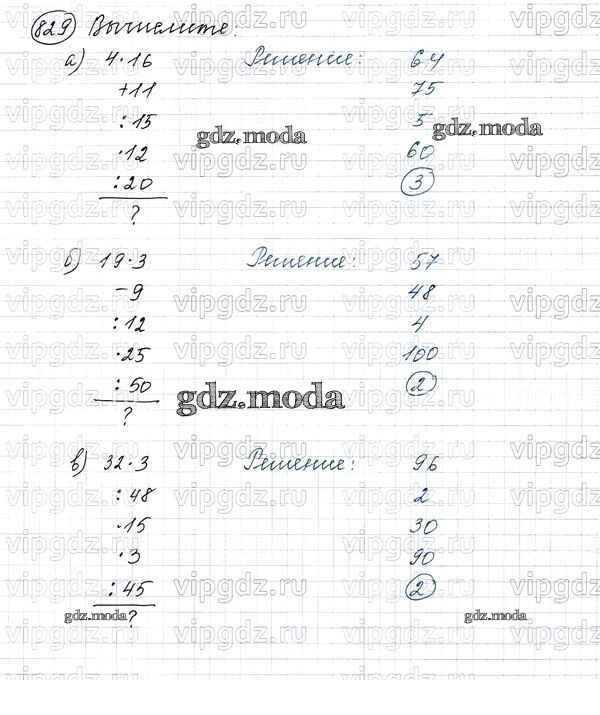 829 Вычислите:
а) 4·16 Решение: 64
+11 75
:15 5
·12 60
:20 3
?
б) 19·3 Решение: 57
-9 48
:12 4
·25 100
:50 2
?
в) 32·3 Решение: 96
:48 2
·15 30
·3 90
:45 2
?
gdz.moda
gdz.moda
gdz.moda
gdz.moda
gdz.moda
vipgdz.ru